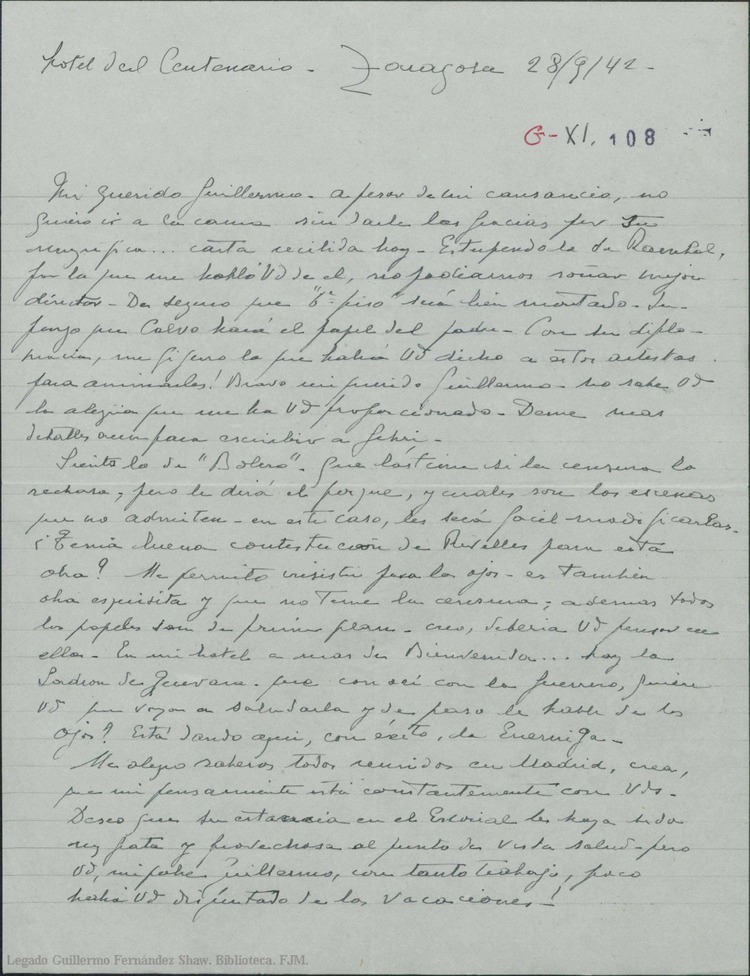 Hotel del Centenario - Zaragoza 28/9/42-
G-XI. 108
Mi querido Guillermo - a pesar de mi cansancio, no
quiero ir a la cama sin darle las gracias por su
magnifica... carta recibida hoy - Estupendo lo de
por la que me habló Vd de el, no podiamos soñar mejor
director - De seguro que "6º piso" será bien montado - Su-
pongo que Calvo hará el papel del padre - Con su diplo-
macia, me figuro lo que habrá Vd dicho a estos artistas
para animarles! Bravo mi querido Guillermo - no sabe Vd
la alegria que me ha Vd proporcionado - Deme mas
detalles aun para escribir a Gehri -
Siento lo de "Bolero". Que lástima si la censura lo
rechasa, pero le dirá el porque, y cuales son las escenas
que no admiten - en este caso, les será facil modificarlas -
¿Tenia buena contestación de Rivelles para esta
obra? Me permito insistir para los ojos - es también
obra esquisita y que no teme la censura; ademas todos
los papeles son de primer plan - creo, deberia Vd pensar en
ellos - En mi hotel a mas de Bienvenida... hay la
Ladron de Guevara - que con la Guerrero, quiere
Vd que vayan a saludarla y de paso le hable de los
ojos? Está dando aqui, con éxito, la Enemiga -
Me alegro saberos todos reunidos en Madrid, crea,
que mi pensamiento está constantemente con Vds -
Deseo que su estancia en el Escorial les haya sido
muy grata y provechosa al punto de vista salud - pero
Vd, mi pobre Guillermo, con tanto trabajo, poco
habrá Vd disfrutado de las vacaciones -!
Legado Guillermo Fernández Shaw. Biblioteca. FJM.